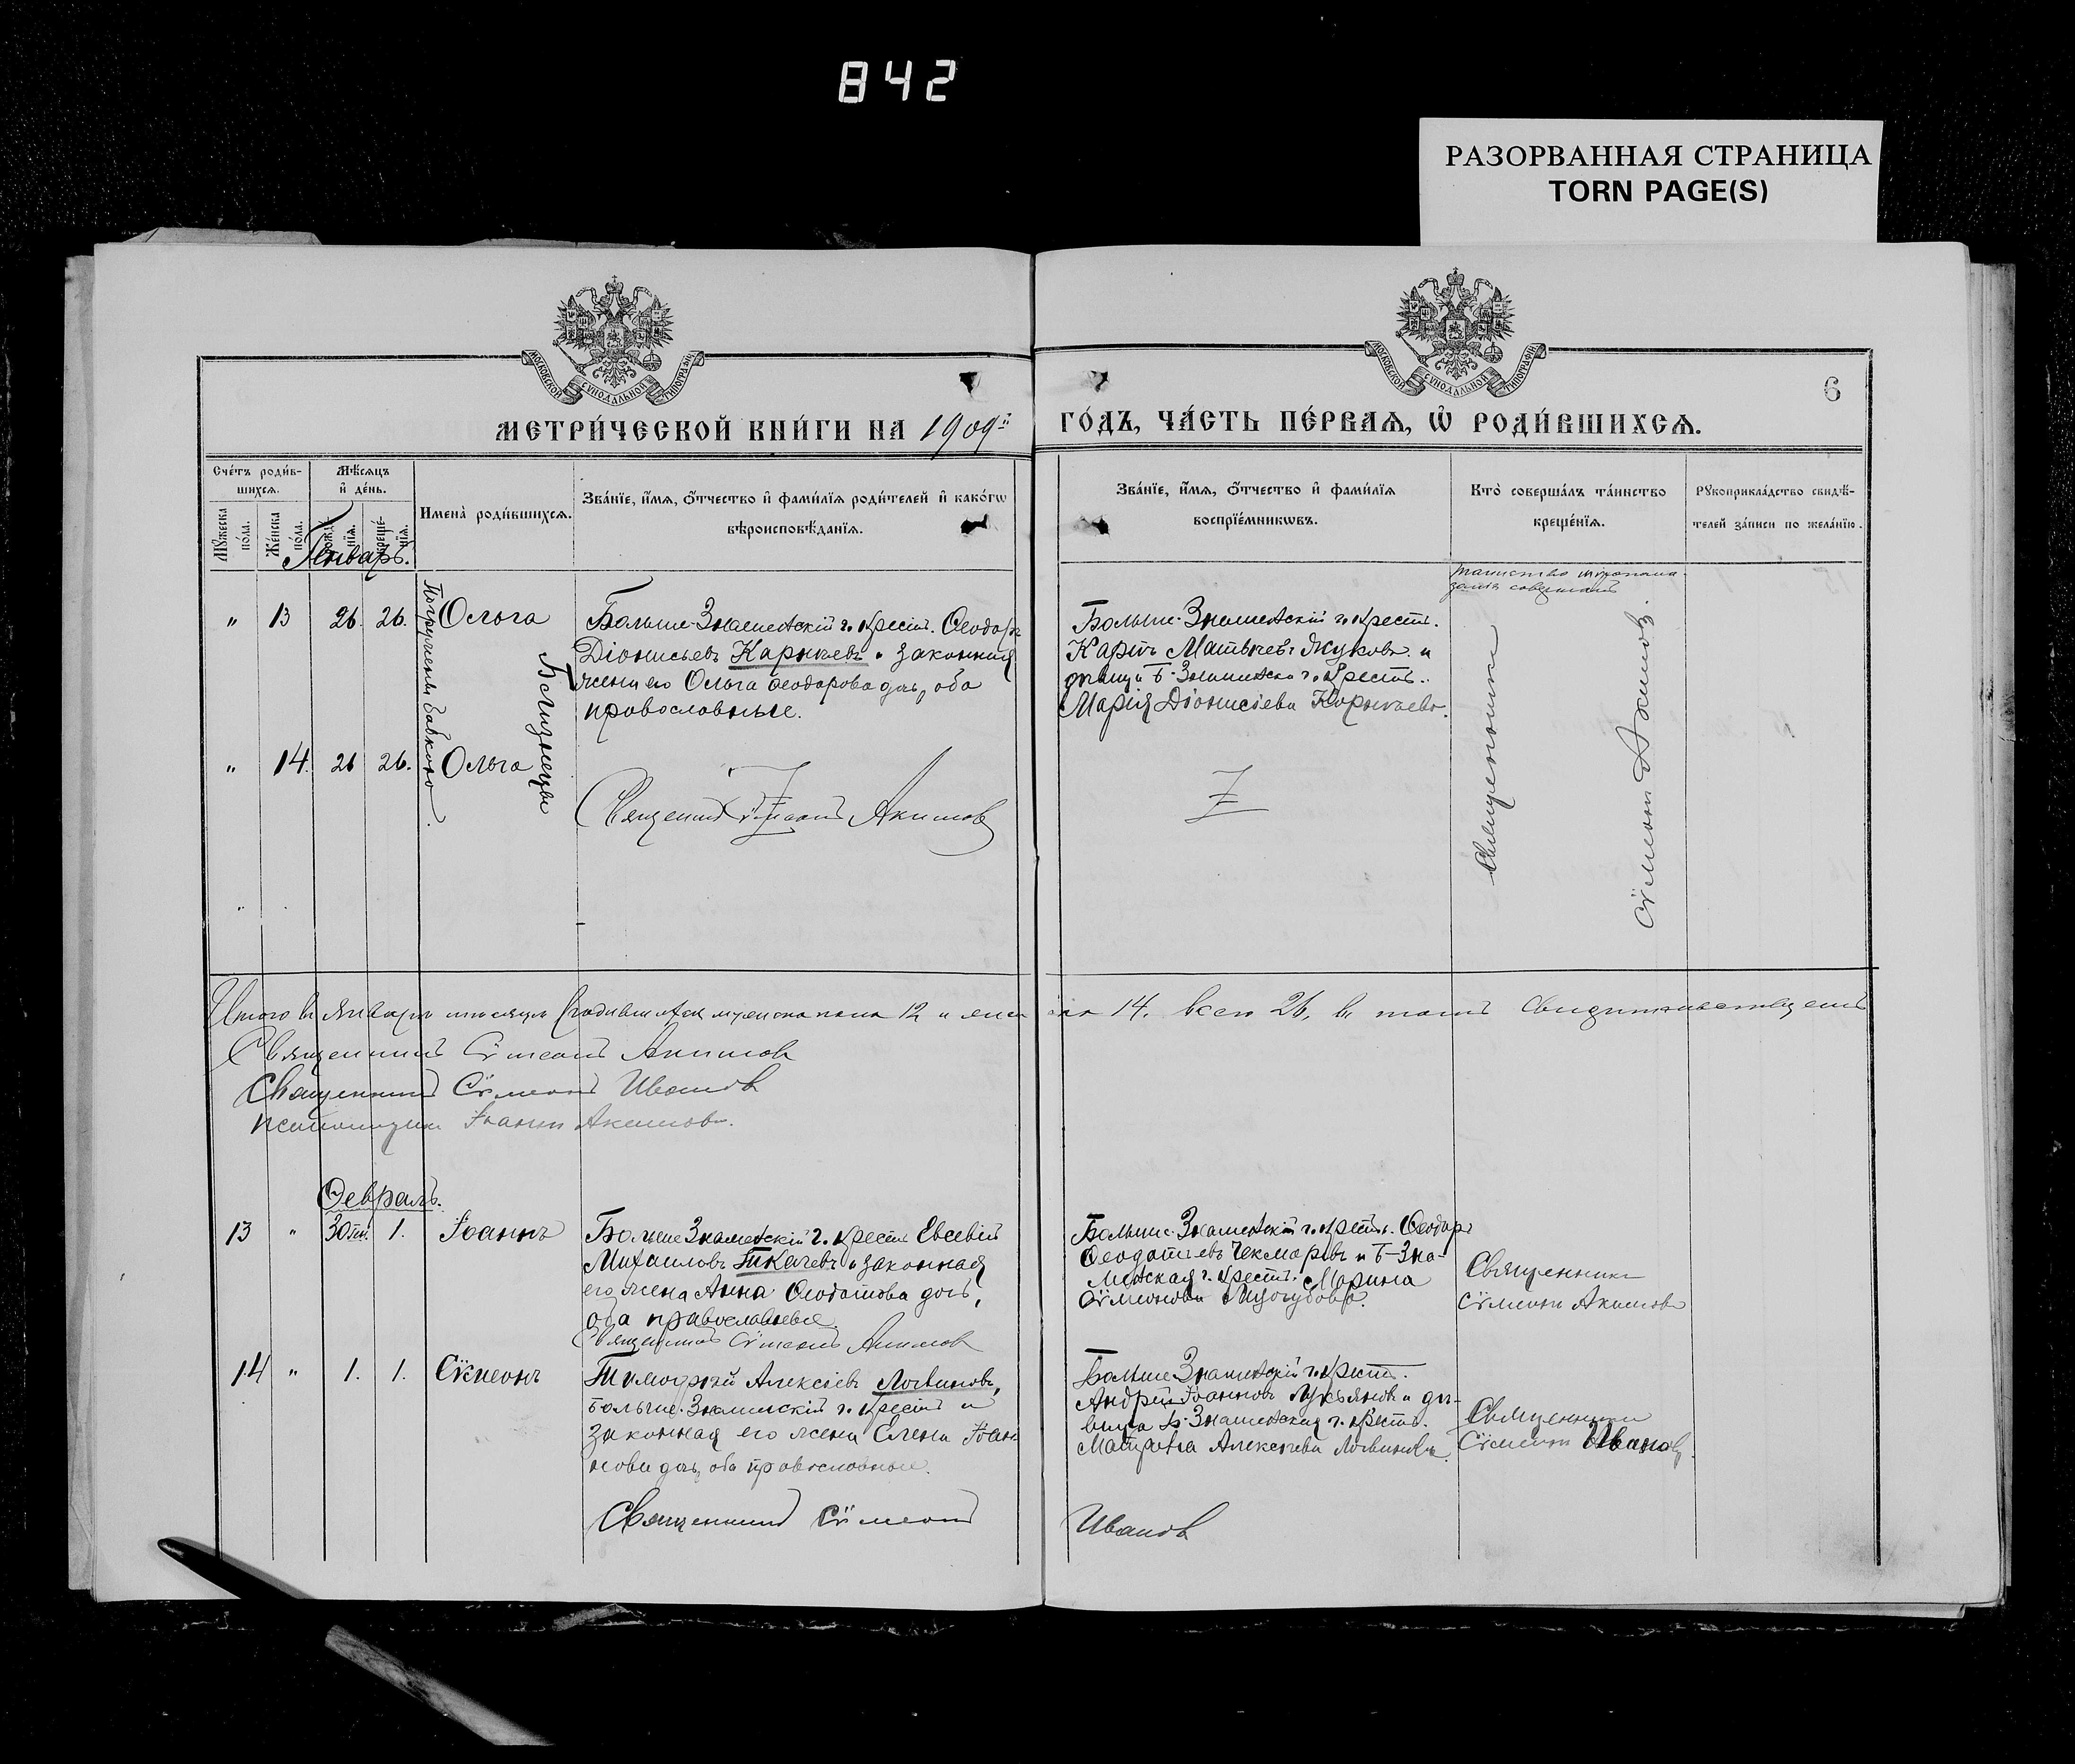 842
РАЗОРВАННАЯ СТРАНИЦА
TORN PAGE(S)
МОСКОВСКОЙ СѴНОДАЛЬНОЙ ТИПОГРАФІИ
МОСКОВСКОЙ СѴНОДАЛЬНОЙ ТИПОГРАФІИ
6
МЕТРИ́ЧЕСКОЙ КНИ́ГИ НА 1909й ГО́ДЪ, ЧА́СТЬ ПЕ́РВАѦ, Ѿ РОДИ́ВШИХСѦ.
Сче́тъ роди́в-
шихсѧ.
Мꙋжеска по́ла.
Же́нска по́ла.
Мѣ́сѧцъ
и҆ де́нь.
рожде́-
нїѧ.
креще́-
нїѧ.
Имена̀ роди́вшихсѧ.
Зва́нїе, и҆́мѧ, о҆́тчество и҆ фами́лїѧ роди́телей и҆ како́гѡ
вѣроисповѣ́данїѧ.
Зва́нїе, и҆́мѧ, о҆́тчество и҆ фами́лїѧ
воспрїе́мникѡвъ.
Кто̀ соверша́лъ та́инство
креще́нїѧ.
Рꙋкоприкла́дство свидѣ́-
телей за́писи по жела́нїю.
Генварь.
таинство миропома-
занія совершилъ
" 13 26. 26. Ольга
Погружены бабкою.
Близнецы
Больше-Знаменскій г. крест. Ѳеодоръ
Діонисьевъ Карнаевъ и законная
жена его Ольга Ѳеодорова дочь, оба
православные.
Больше-Знаменскій г. крест.
Карпъ Матвѣевъ Жуковъ и
дѣвица Б-Знаменск. г. крест.
Марія Діонисіева Карнаева.
Священникъ
Сѵмеонъ Акимовъ.
" 14. 26 26. Ольга
Священникъ Сѵмеонъ Акимовъ
Итого въ январѣ мѣсяцѣ родившихся мужска пола 12 и женска 14. всего 26, въ томъ свидѣтельствуемъ
Священникъ Сѵмеонъ Акимовъ
Священникъ Сѵмеонъ Ивановъ
псаломщикъ Іоаннъ Акимовъ.
Февраль.
13 " 30 ген. 1. Іоаннъ
Больше Знаменскій г. крест. Евсевій
Михаиловъ Ткачевъ и законная
его жена Анна Ѳеодотова дочь,
оба православные.
Священникъ Сѵмеонъ Акимовъ
Больше-Знаменскій г. крест. Ѳеодоръ
Ѳеодотьевъ Чекмаревъ и Б-Зна-
менская г. крест. Марина
Сѵмеонова
Священникъ
Сѵмеонъ Акимовъ
14 " 1. 1. Сѵмеонъ
Тимофей Алексіевъ Логвиновъ,
Больше-Знаменскій г. крест. и
законная его жена Елена Іоан-
нова дочь, оба православные.
Больше Знаменскій г. крест.
Андрей Іоанновъ Лукьяновъ и дѣ-
вица Б-Знаменская г. крест.
Матрона Алексѣева Логвинова.
Священникъ
Сѵмеонъ Ивановъ.
Священникъ Сѵмеонъ Ивановъ